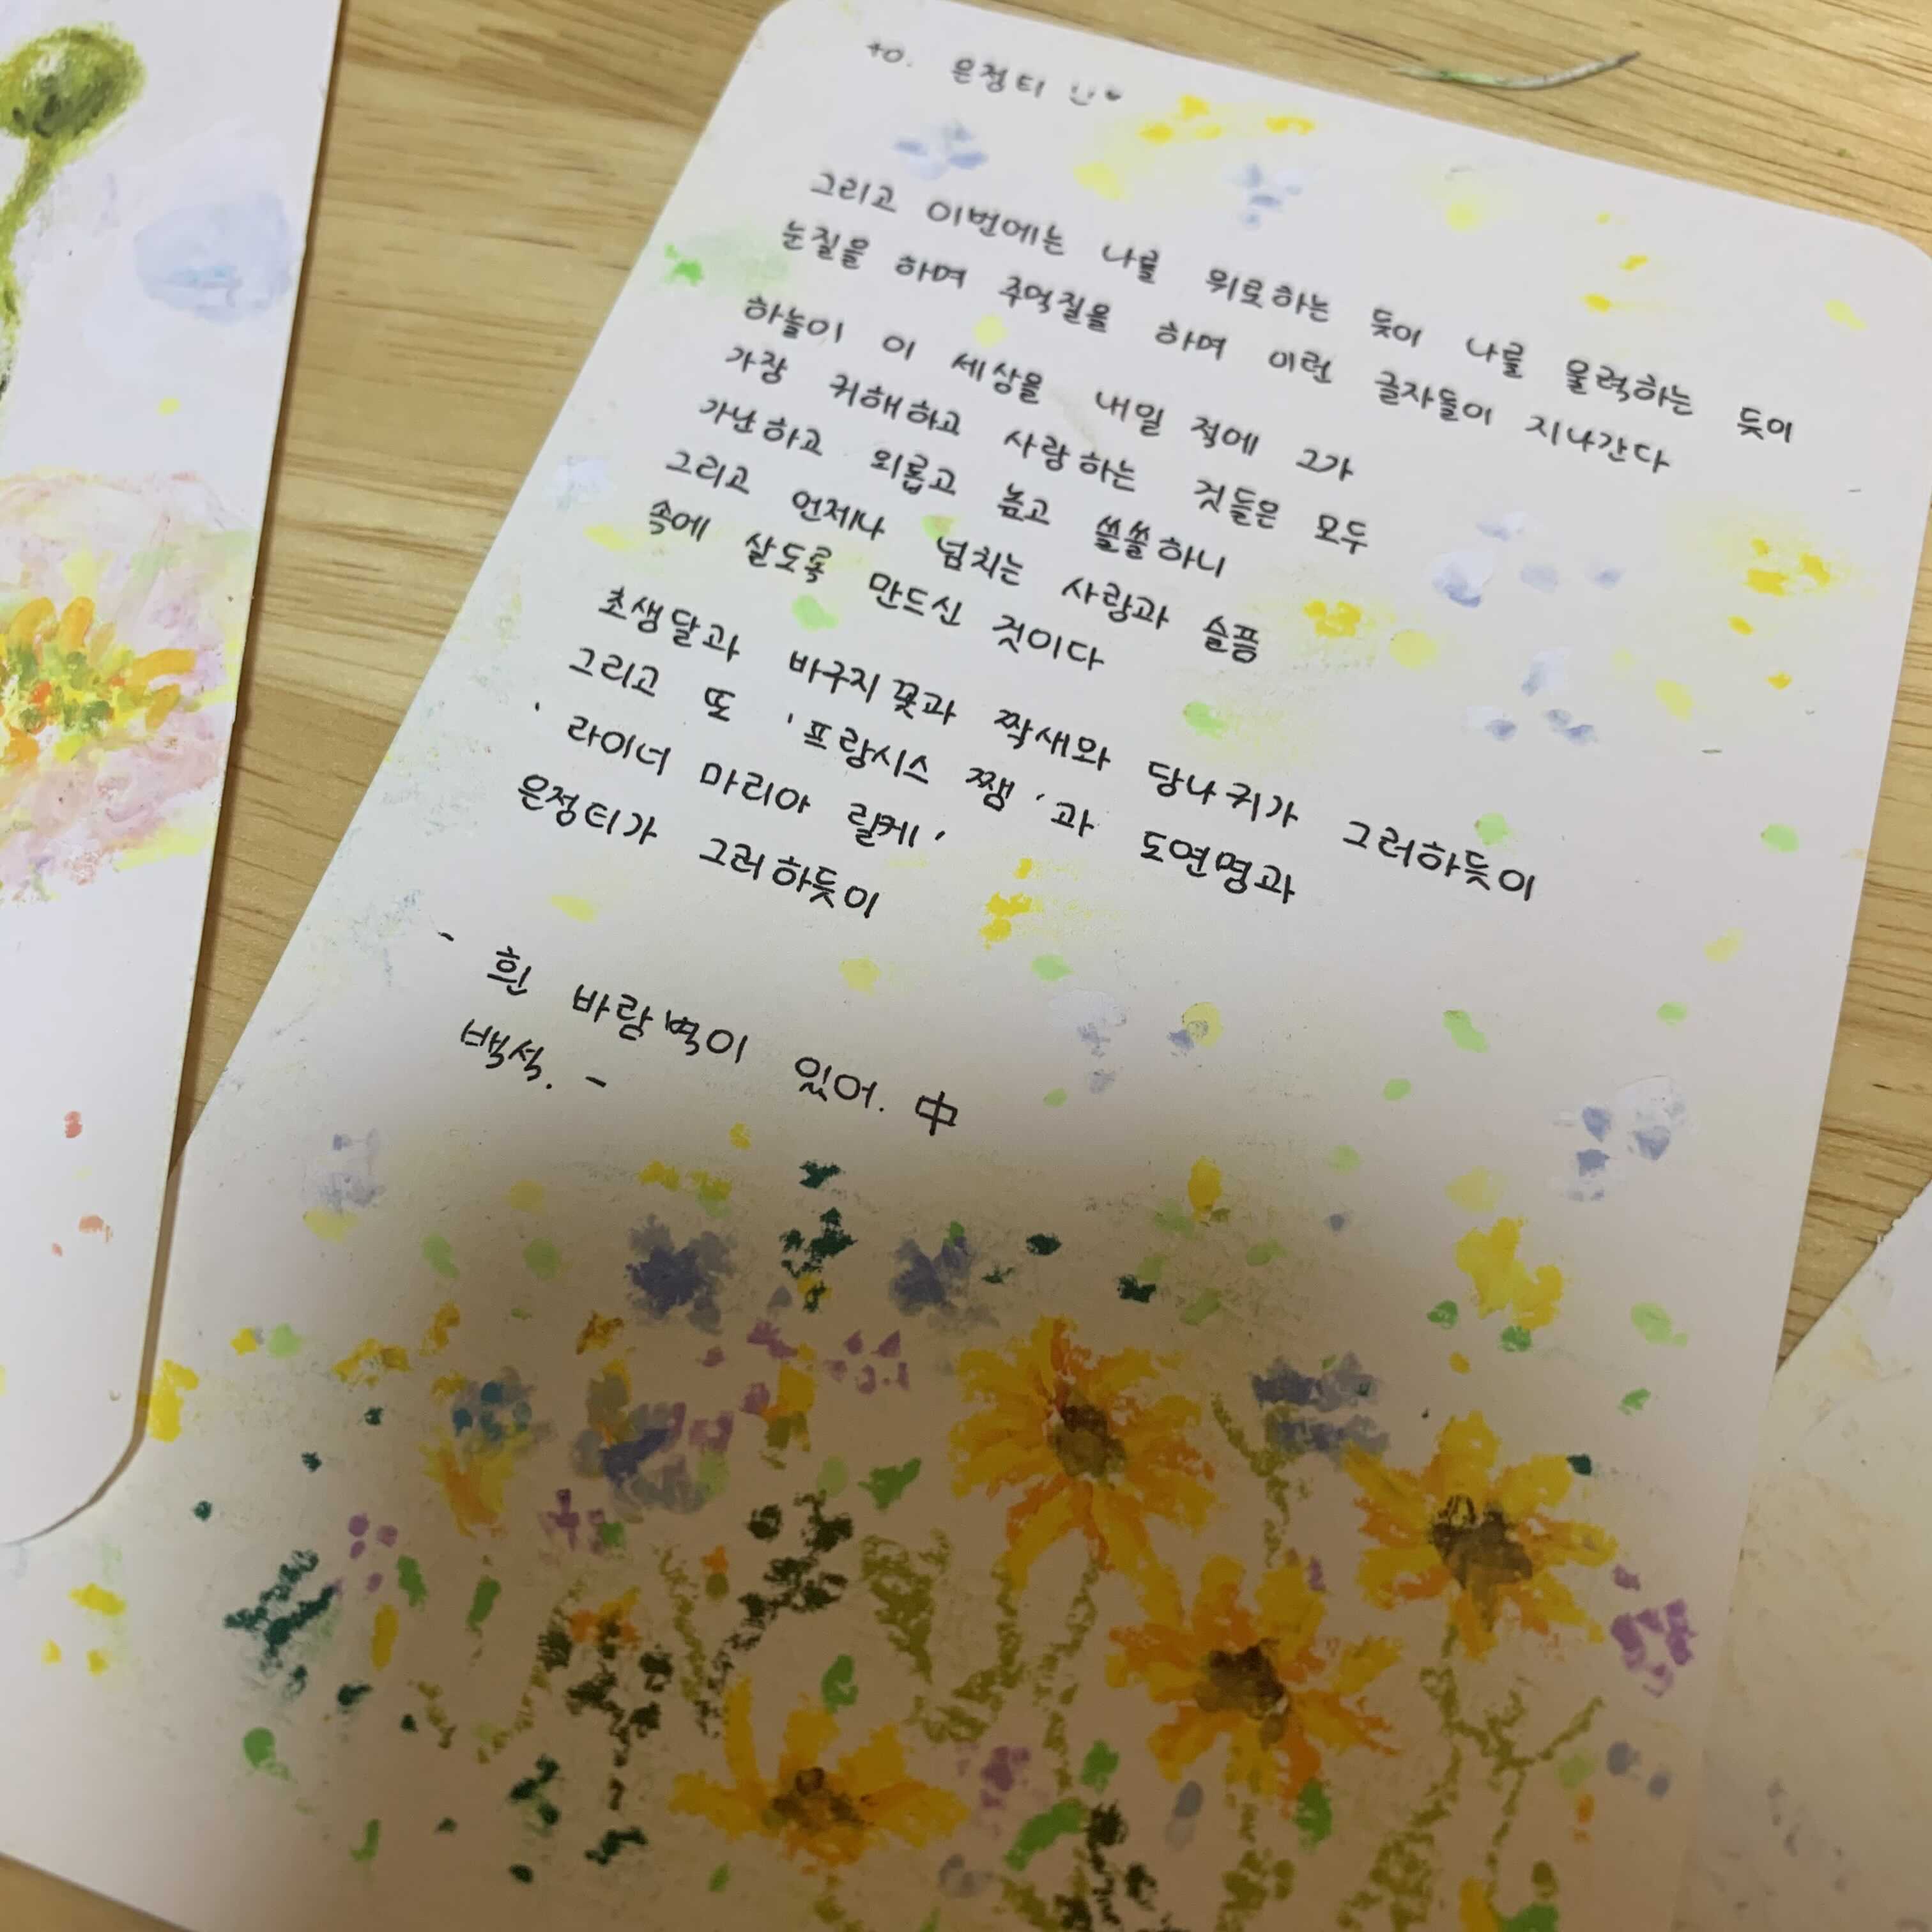 to. 은정티 ♥
그리고 이번에는 나를 위로하는 듯이 나를 울력하는 듯이
눈질을 하며 주먹질을 하며 이런 글자들이 지나간다
하늘이 이 세상을 내일 적에 그가
가장 귀해하고 사랑하는 것들은 모두
가난하고 외롭고 높고 쓸쓸하니
그리고 언제나 넘치는 사랑과 슬픔
속에 살도록 만드신 것이다
초생달과 바구지꽃과 짝새와 당나귀가 그러하듯이
그리고 또 '프랑시스 쨈'과 도연명과
'라이너 마리아 릴케'
은정티가 그러하듯이
- 흰 바람벽이 있어. 中
백석. -